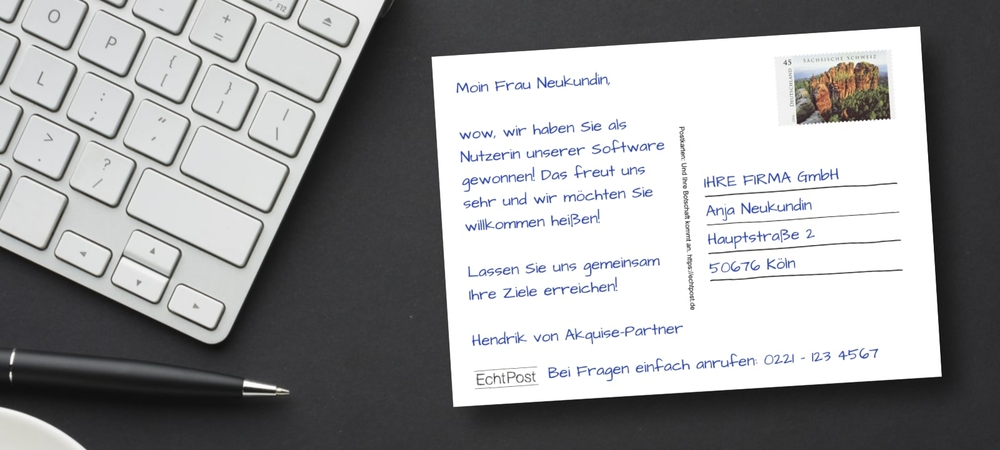 O
P
{
[
+
=
F12
L
:
;
}
]
"
'
|
\
>
.
?
/
Moin Frau Neukundin,
wow, wir haben Sie als
Nutzerin unserer Software
gewonnen! Das freut uns
sehr und wir möchten Sie
willkommen heißen!
Lassen Sie uns gemeinsam
Ihre Ziele erreichen!
Hendrik von Akquise-Partner
EchtPost
Bei Fragen einfach anrufen: 0221 - 123 4567
Postkarten: Und Ihre Botschaft kommt an. https://echtpost.de
45
SÄCHSISCHE SCHWEIZ
DEUTSCHLAND
IHRE FIRMA GmbH
Anja Neukundin
Hauptstraße 2
50676 Köln